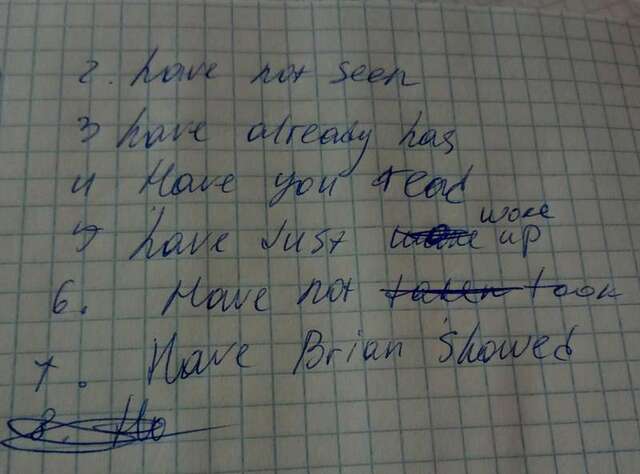 2. have not seen
3 have already has
4 Have you read
5 have Just woke up
6. Have not taken took
7. Have Brian showed
8. Ho